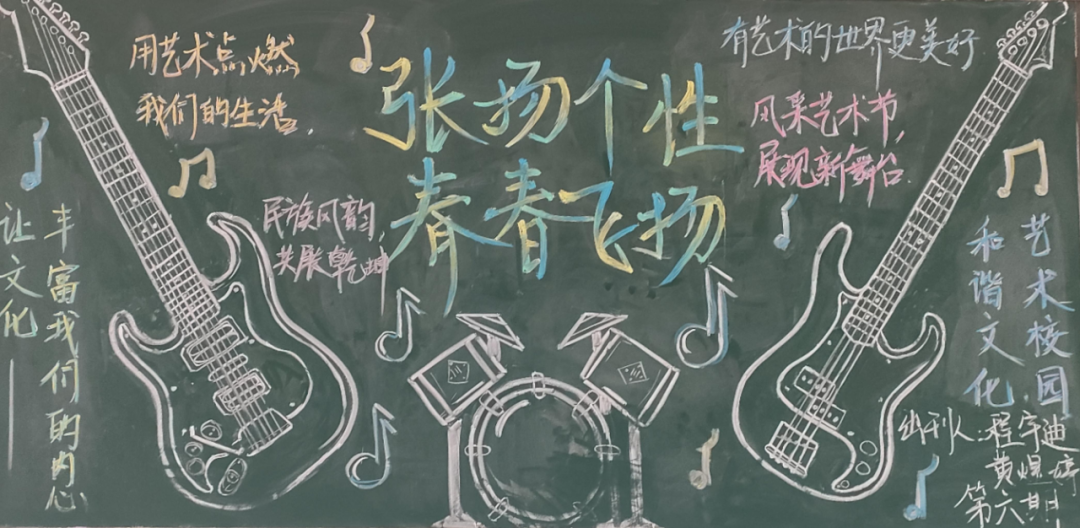 用艺术点燃
我们的生活.
张扬个性
春春飞扬
有艺术的世界更美好
风采艺术节,
展现新舞台.
民族风韵,
共展乾坤
让文化——
丰富我们的内心
艺术校园
和谐文化
出刊人:程宇迪
黄煜
第六期